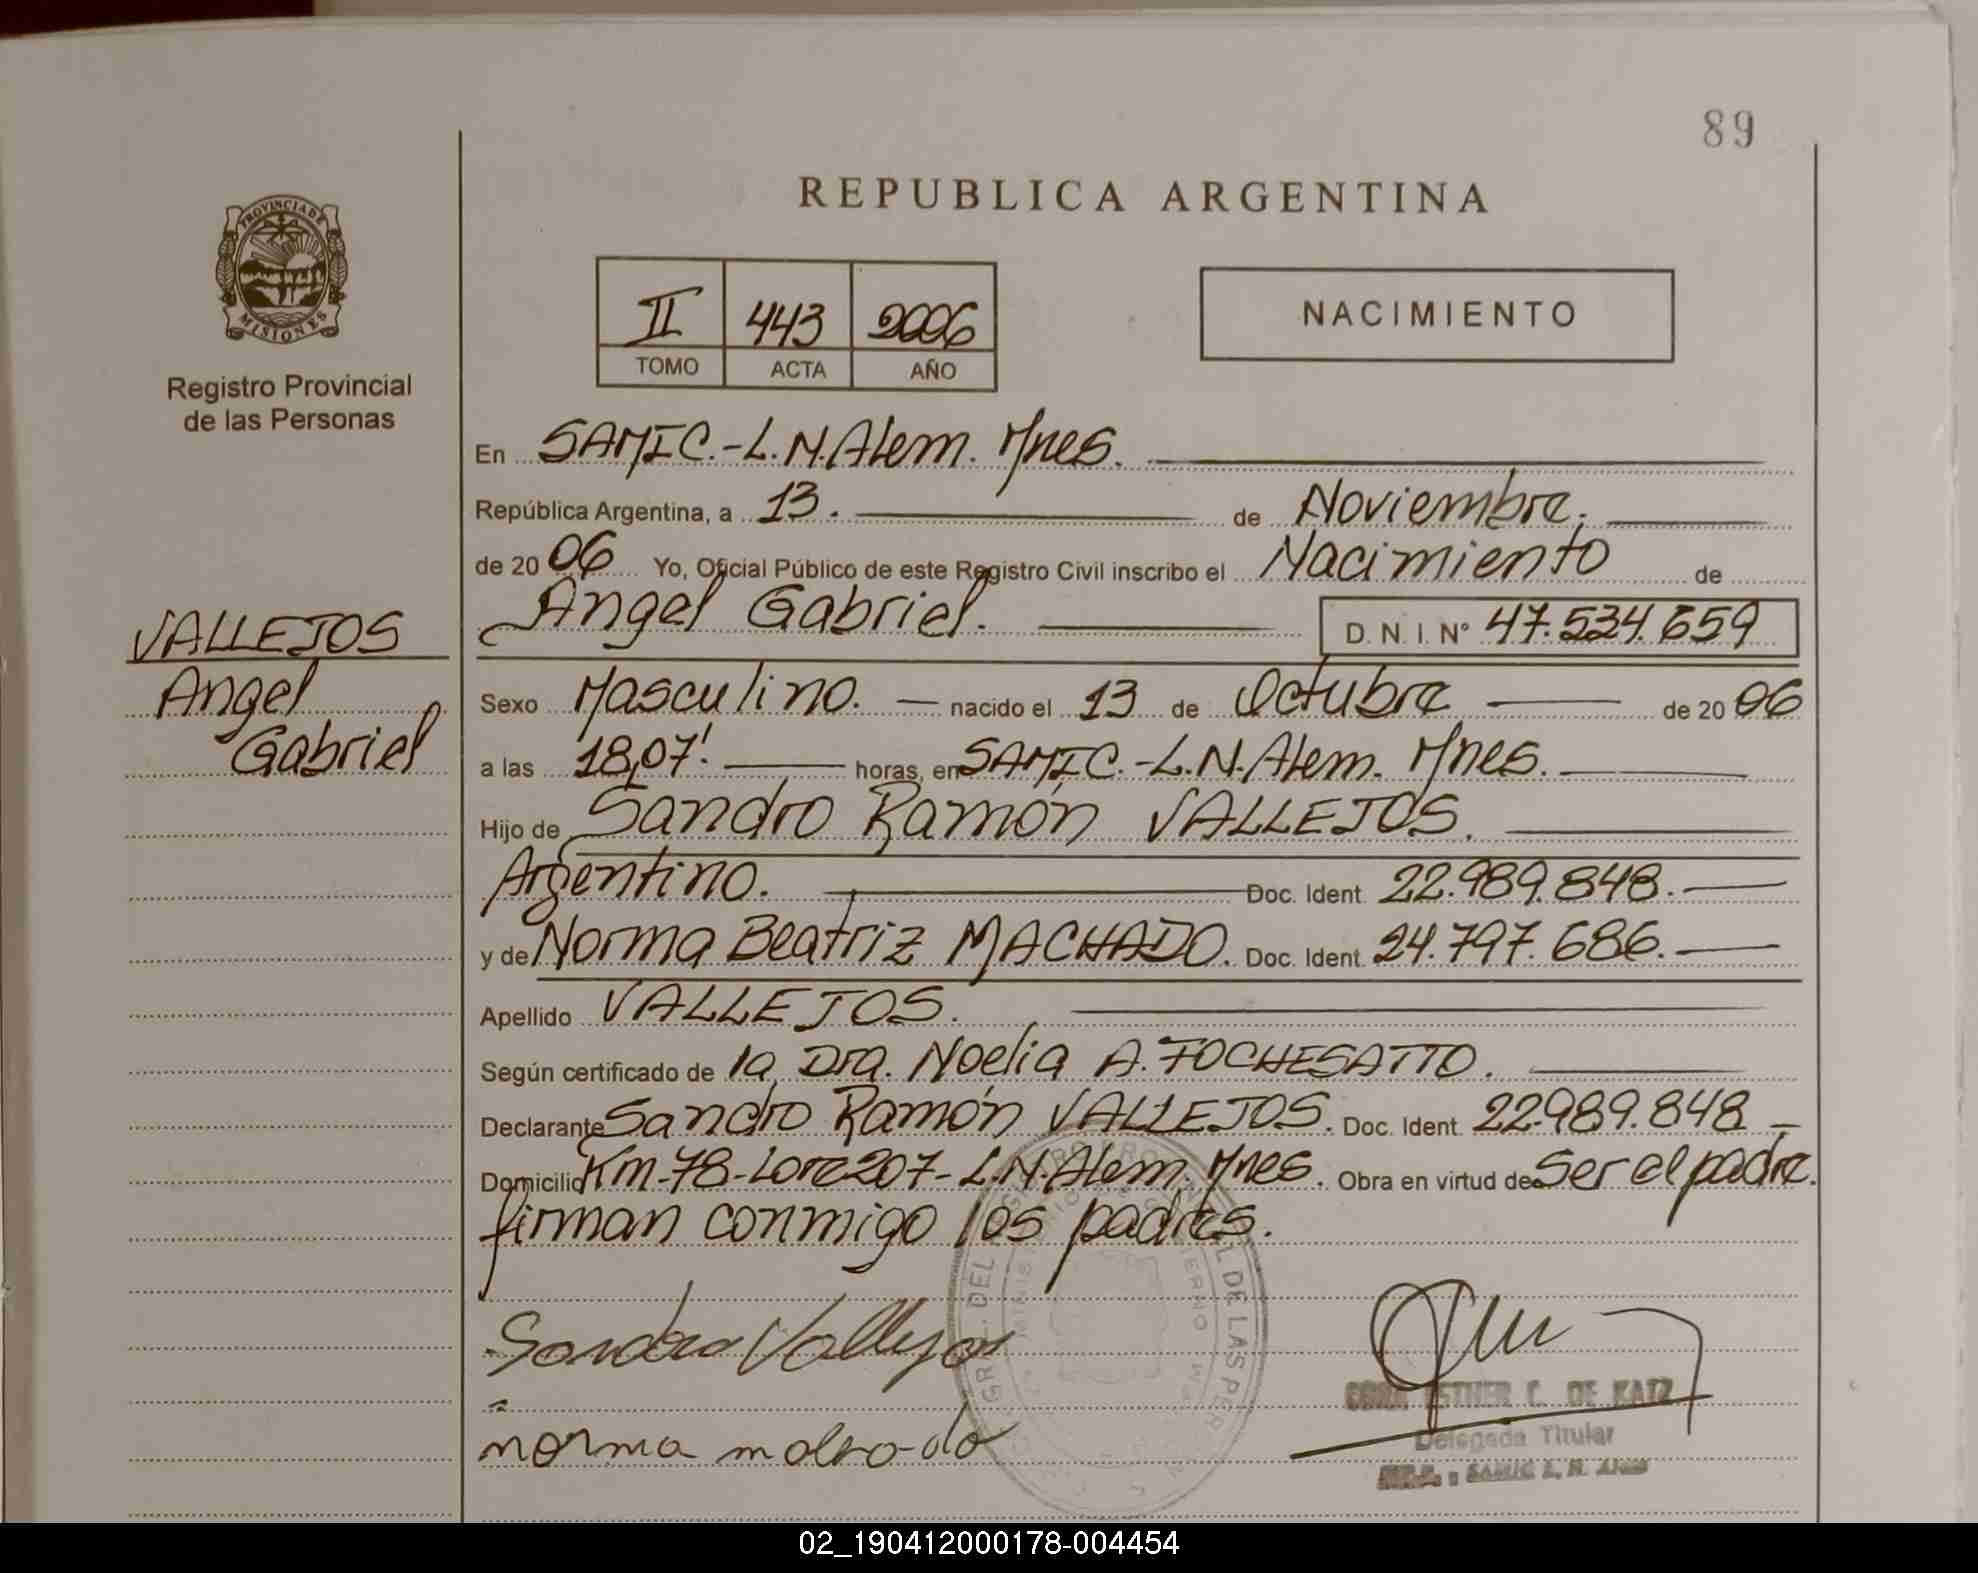 89
REPUBLICA ARGENTINA
PROVINCIA DE
MISIONES
Registro Provincial
de las Personas
II 443 2006
TOMO ACTA AÑO
NACIMIENTO
En SAMIC.-L.N.Alem. Mnes.
República Argentina, a 13. de Noviembre.
de 2006 Yo, Oficial Público de este Registro Civil inscribo el Nacimiento de
Angel Gabriel. D. N. I. N° 47.534.659
VALLEJOS
Angel
Gabriel
Sexo Masculino. nacido el 13 de Octubre de 2006
a las 18,07'. horas, en SAMIC.-L.N.Alem. Mnes.
Hijo de Sandro Ramón VALLEJOS.
Argentino. Doc. Ident. 22.989.848.
y de Norma Beatriz MACHADO. Doc. Ident. 24.797.686.
Apellido VALLEJOS.
Según certificado de la Dra. Noelia A. FOCHESATTO.
Declarante Sandro Ramón VALLEJOS. Doc. Ident. 22.989.848
Domicilio Km-78-Lote207-L.N.Alem, Mnes. Obra en virtud de Ser el padre.
firman conmigo los padres.
Sandro Vallejos
norma
ESTHER C. DE KATZ
Delegada Titular
02_190412000178-004454